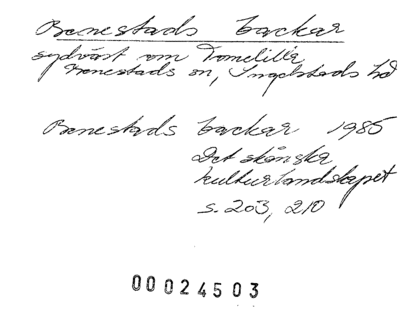 Benestads backar
sydväst om Tomelilla
Benestads sn, Ingelstads hd
Benestads backar 1985
Det skånska
kulturlandskapet
s. 203, 210
00024503